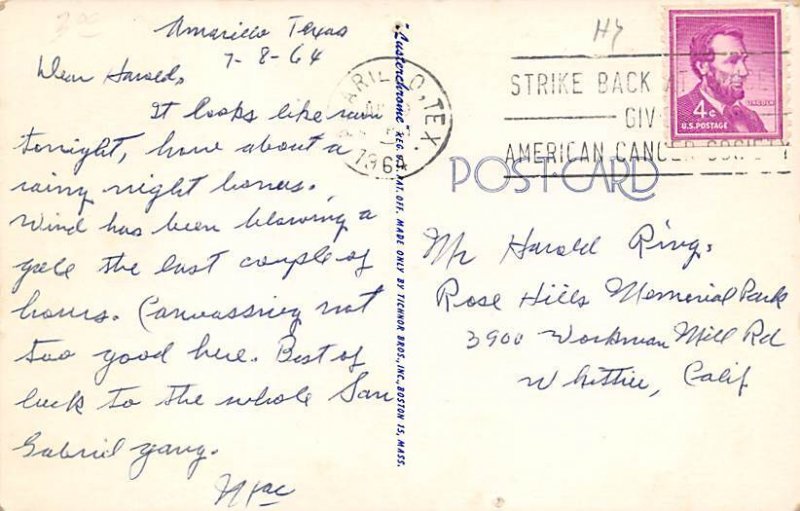 Amarillo Texas
7-8-64
Dear Harold,
It looks like rain
tonight, how about a
rainy night bonus.
Wind has been blowing a
gale the last couple of
hours. Canvassing not
too good here. Best of
luck to the whole San
Gabriel gang.
Mac
"Lusterchrome" REG. U.S. PAT. OFF. MADE ONLY BY TICHNOR BROS., INC., BOSTON 15, MASS.
AMARILLO, TEX.
1964
STRIKE BACK AT
GIV
AMERICAN CANCER SOCIETY
4¢
LINCOLN
U.S. POSTAGE
POST CARD
Mr Harold Ring.
Rose Hills Memorial Park
3900 Workman Mill Rd
Whittier, Calif